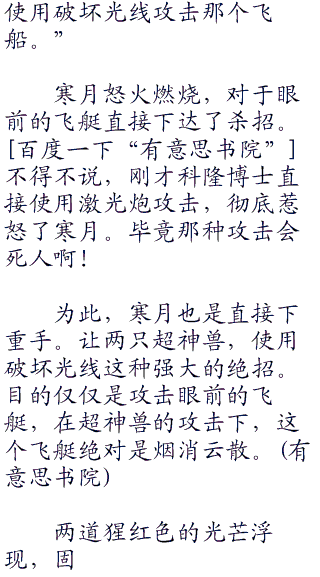 使用破坏光线攻击那个飞
船。”
寒月怒火燃烧，对于眼
前的飞艇直接下达了杀招。
[百度一下“有意思书院”]
不得不说，刚才科隆博士直
接使用激光炮攻击，彻底惹
怒了寒月。毕竟那种攻击会
死人啊！
为此，寒月也是直接下
重手。让两只超神兽，使用
破坏光线这种强大的绝招。
目的仅仅是攻击眼前的飞
艇，在超神兽的攻击下，这
个飞艇绝对是烟消云散。(有
意思书院)
两道猩红色的光芒浮
现，固